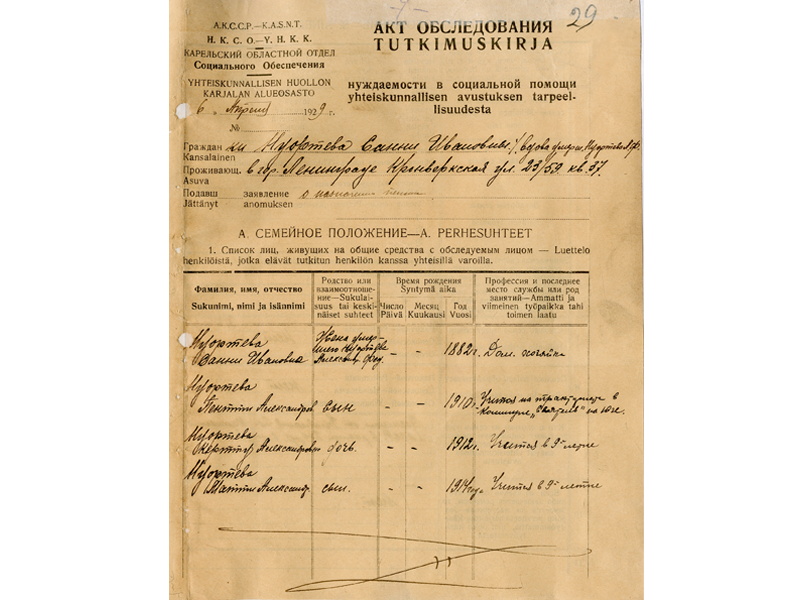 29
А.К.С.С.Р.—K.A.S.N.T.
Н. К. С. О.—Y. H. K. K.
КАРЕЛЬСКИЙ ОБЛАСТНОЙ ОТДЕЛ
Социального Обеспечения
YHTEISKUNNALLISEN HUOLLON
KARJALAN ALUEOSASTO
6 „ Апреля 1929 г.
№
АКТ ОБСЛЕДОВАНИЯ
TUTKIMUSKIRJA
нуждаемости в социальной помощи
yhteiskunnallisen avustuksen tarpeel-
lisuudesta
Граждан ки Нуортева Санни Ивановны /вдова умерш. Нуортева
Kansalainen
Проживающ. в гор. Ленинграде Кронверкская ул. 23/59 кв. 37.
Asuva
Подавш заявление о назначении пенсии
Jättänyt anomuksen
А. СЕМЕЙНОЕ ПОЛОЖЕНИЕ—A. PERHESUHTEET
1. Список лиц, живущих на общие средства с обследуемым лицом — Luettelo
henkilöistä, jotka elävät tutkitun henkilön kanssa yhteisillä varoilla.
Фамилия, имя, отчество
Sukunimi, nimi ja isännimi
Родство или
взаимоотноше-
ние—Sukulai-
suus tai keski-
näiset suhteet
Время рождения
Syntymä aika
Число
Päivä
Месяц
Kuukausi
Год
Vuosi
Профессия и последнее
место службы или род
занятий—Ammatti ja
viimeinen työpaikka tahi
toimen laatu
Нуортева
Санни Ивановна
Жена умер-
шего Нуортева
Александр. Фед.
- - 1882г. Дом. хозяйка
Нуортева
Пентти Александров сын - - 1910г. Учится на тракториста в
коммуне „Сеятель" на юге.
Нуортева
Керттту Александровн дочь. - - 1912г. Учится в 9-летке
Нуортева
Матти Александр. сын. - - 1914году Учится в 9-летке